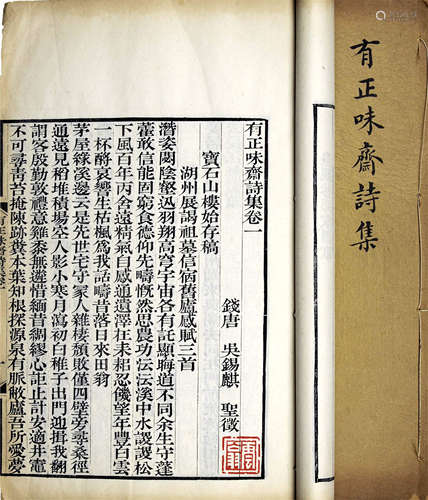 有正味齋詩集
有正味齋詩集卷一
錢唐 吳錫麒 聖徵
寶石山樓始存稿
湖州展謁祖墓信宿舊廬感賦三首
潛姿閟陰壑迅羽翔高穹宇宙各有託顯晦道不同余生守蓬
藋敢信能固窮食德仰先疇慨然思農功沄沄溪中水謖謖松
下風百年丙舍遠精氣自感通遺澤在耒耜忍饑望年豐白雲
一杯酹哀響生枯楓爲我話疇昔落日來田翁
茅屋緣溪邊云是先世宅守冢人雞棲頹敗僅四壁旁尋桑徑
通遠見稻堆積場空人影小寒月瀉初白稚子出門迎揖我翻
謂客殷勤敦禮意雞黍無遴惜緬昔綢繆心詎止計安適井竈
不可尋青苔掩陳跡賁本葉知根探源泉有脈敝廬吾所愛夢